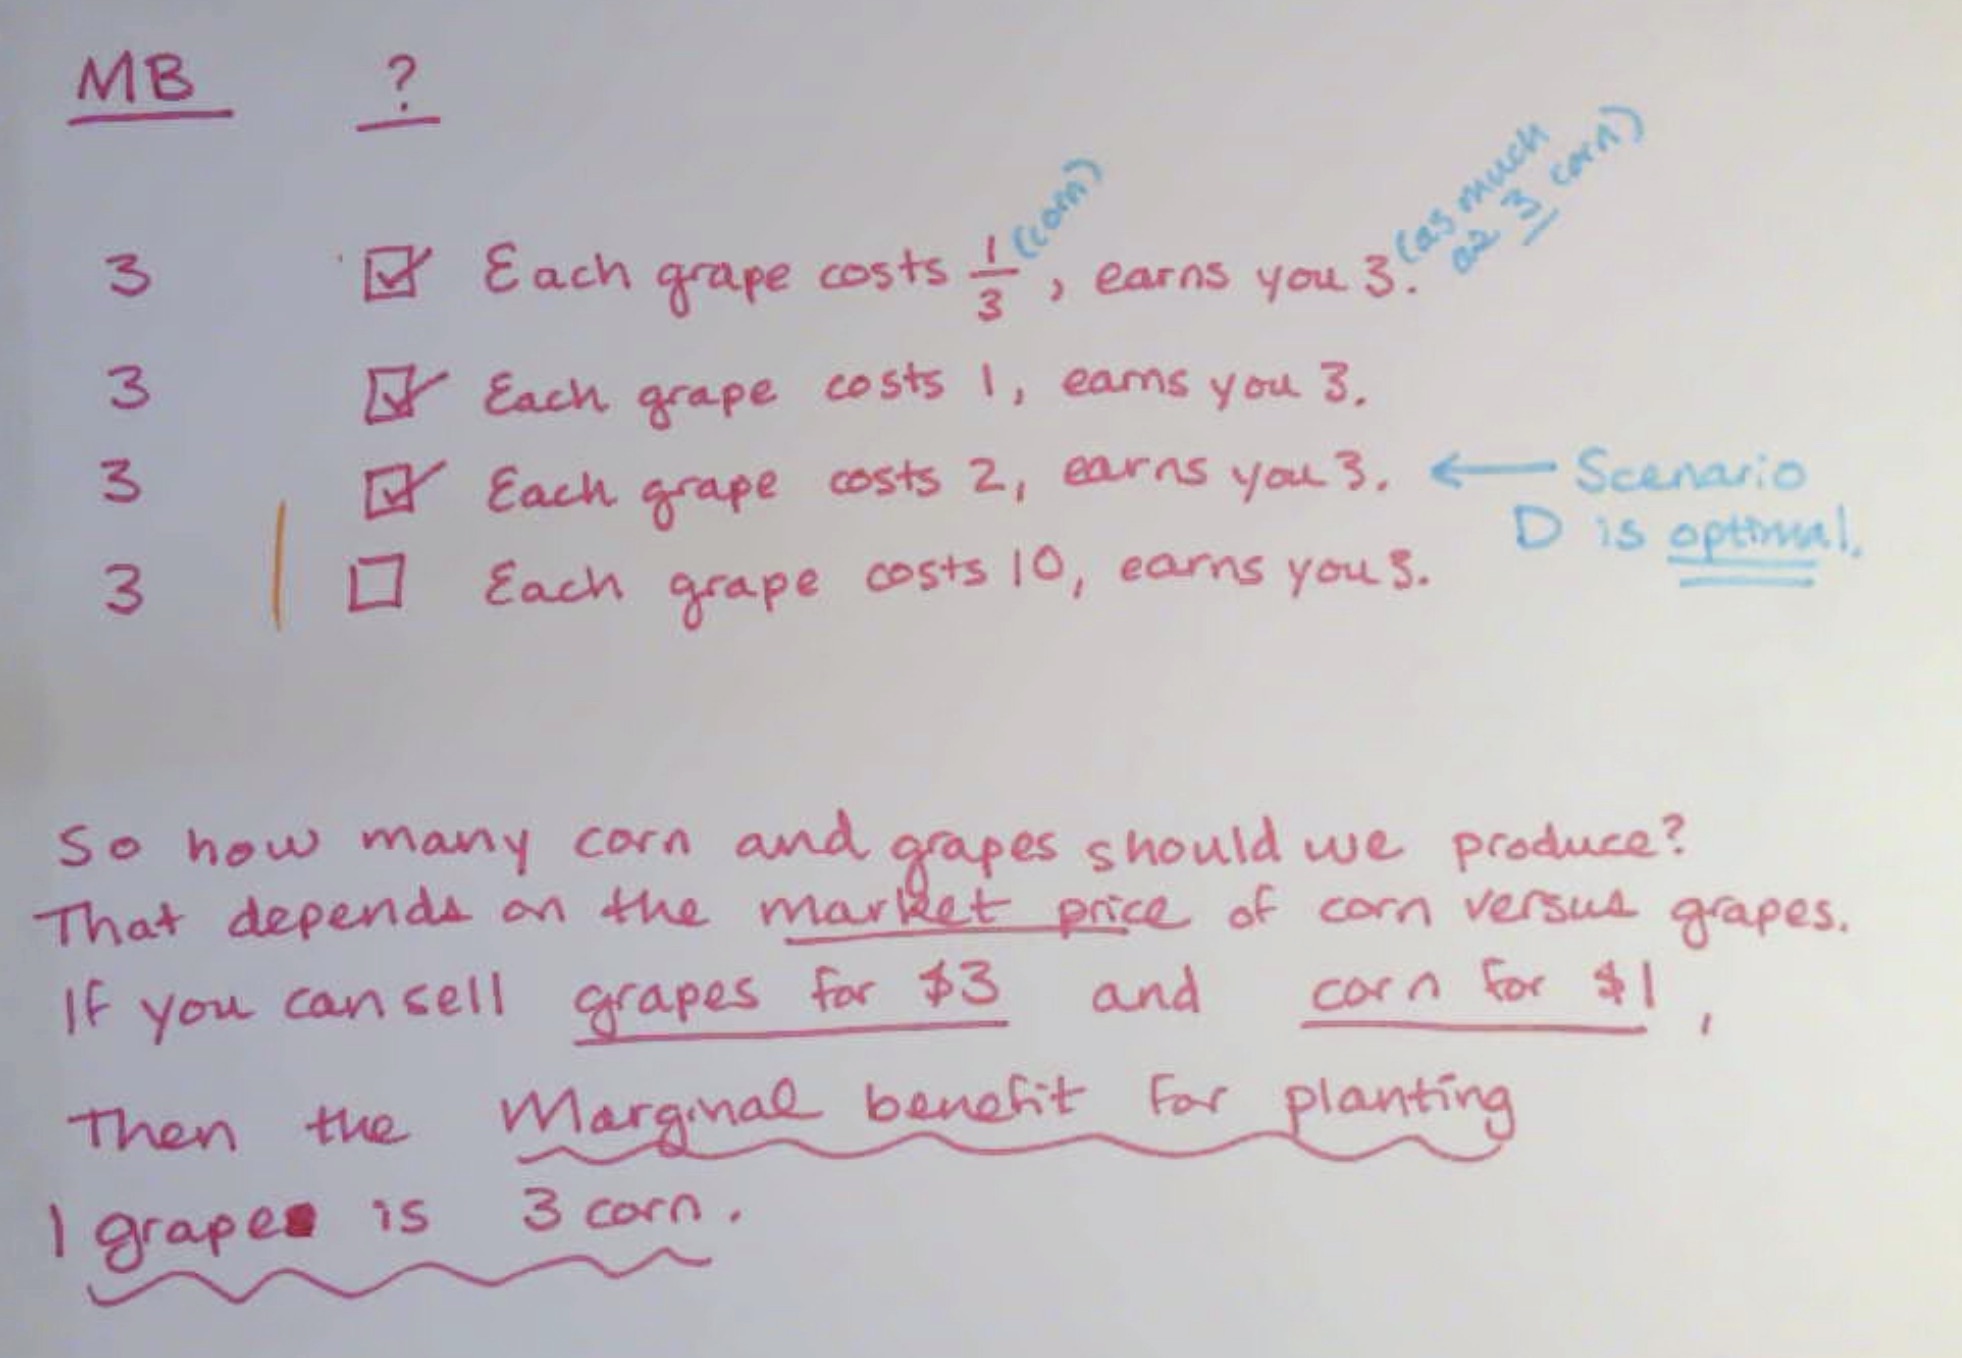 MB ?
3 ☑ Each grape costs 1/3 (corn), earns you 3. (as much as 3 corn)
3 ☑ Each grape costs 1, earns you 3.
3 ☑ Each grape costs 2, earns you 3. ← Scenario
D is optimal.
3 ☐ Each grape costs 10, earns you 3.
So how many corn and grapes should we produce?
That depends on the market price of corn versus grapes.
If you can sell grapes for $3 and corn for $1,
Then the Marginal benefit for planting
1 grape is 3 corn.